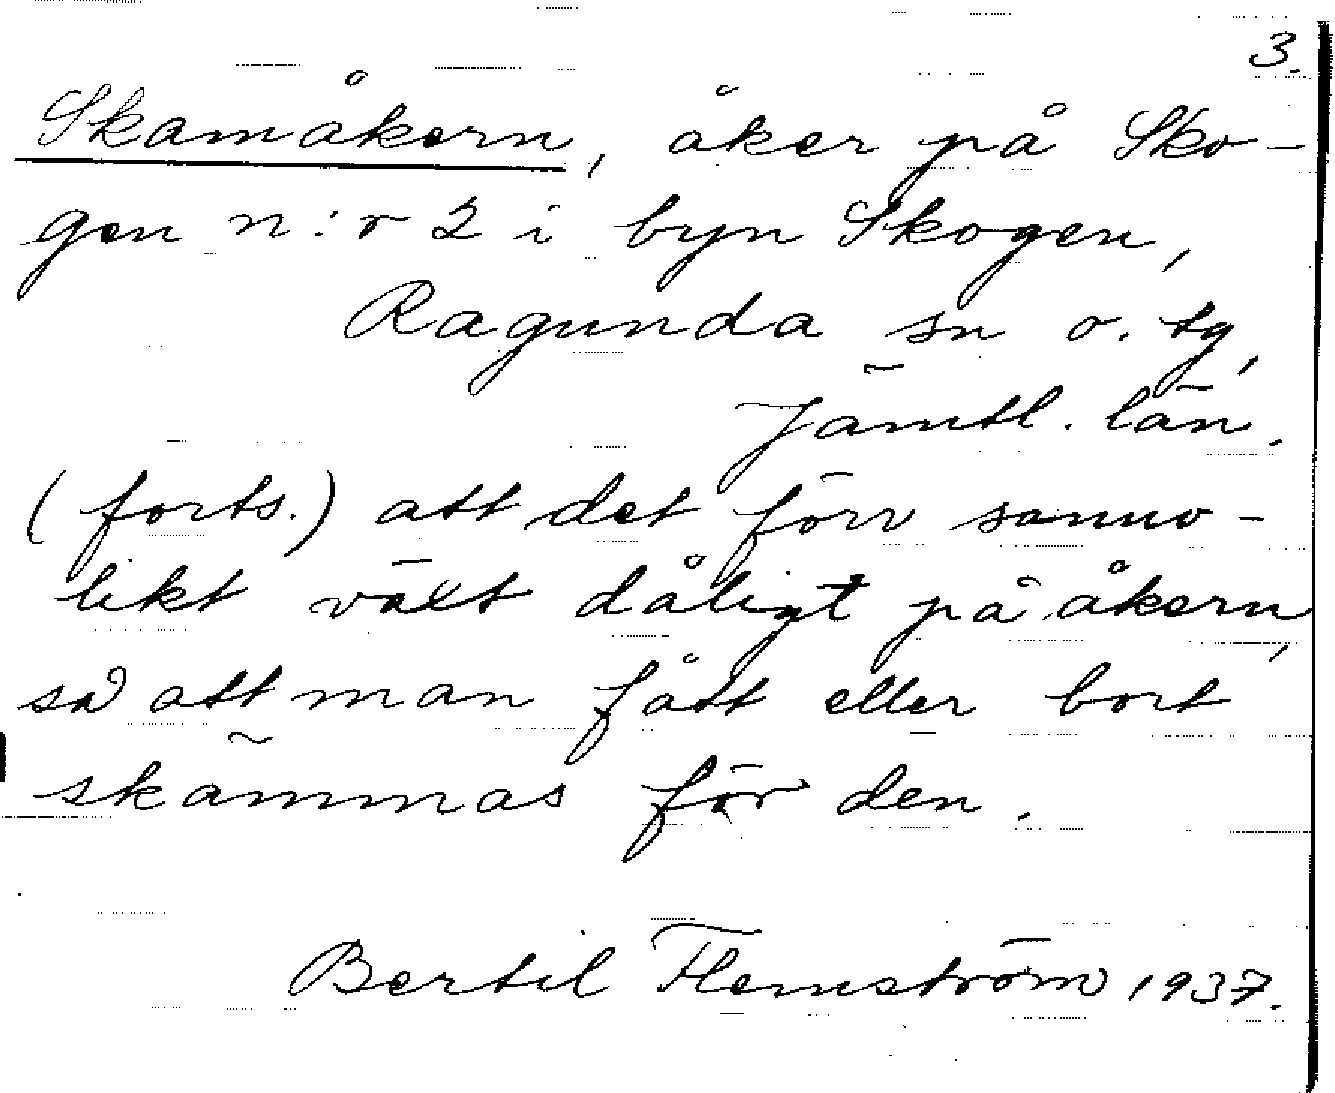 3.
Skamåkern, åker på Sko-
gen n:r 2 i byn Skogen,
Ragunda sn o. tg,
Jämtl. län.
(forts.) att det förr sanno-
likt växt dåligt på åkern,
så att man fått eller bort
skämmas för den.
Bertil Flemström 1937.